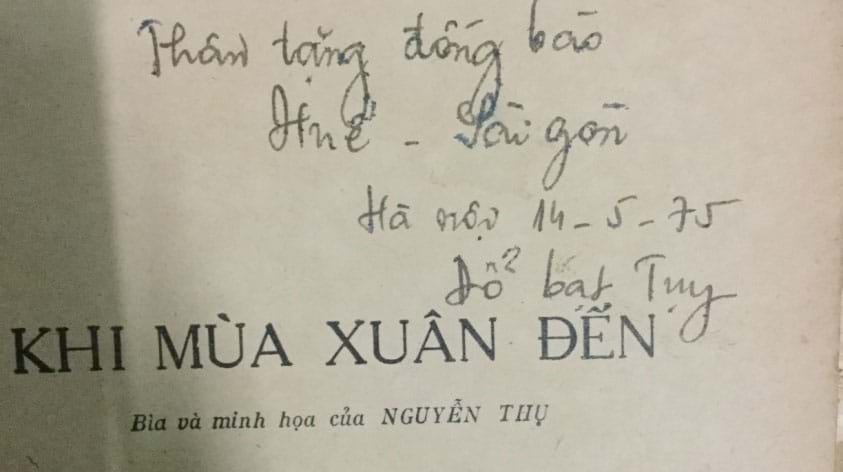 Thân tặng đồng bào
Huế - Sài gòn
Hà nội 14-5-75
Đỗ bạt Tụy
KHI MÙA XUÂN ĐẾN
Bìa và minh họa của NGUYỄN THỤ